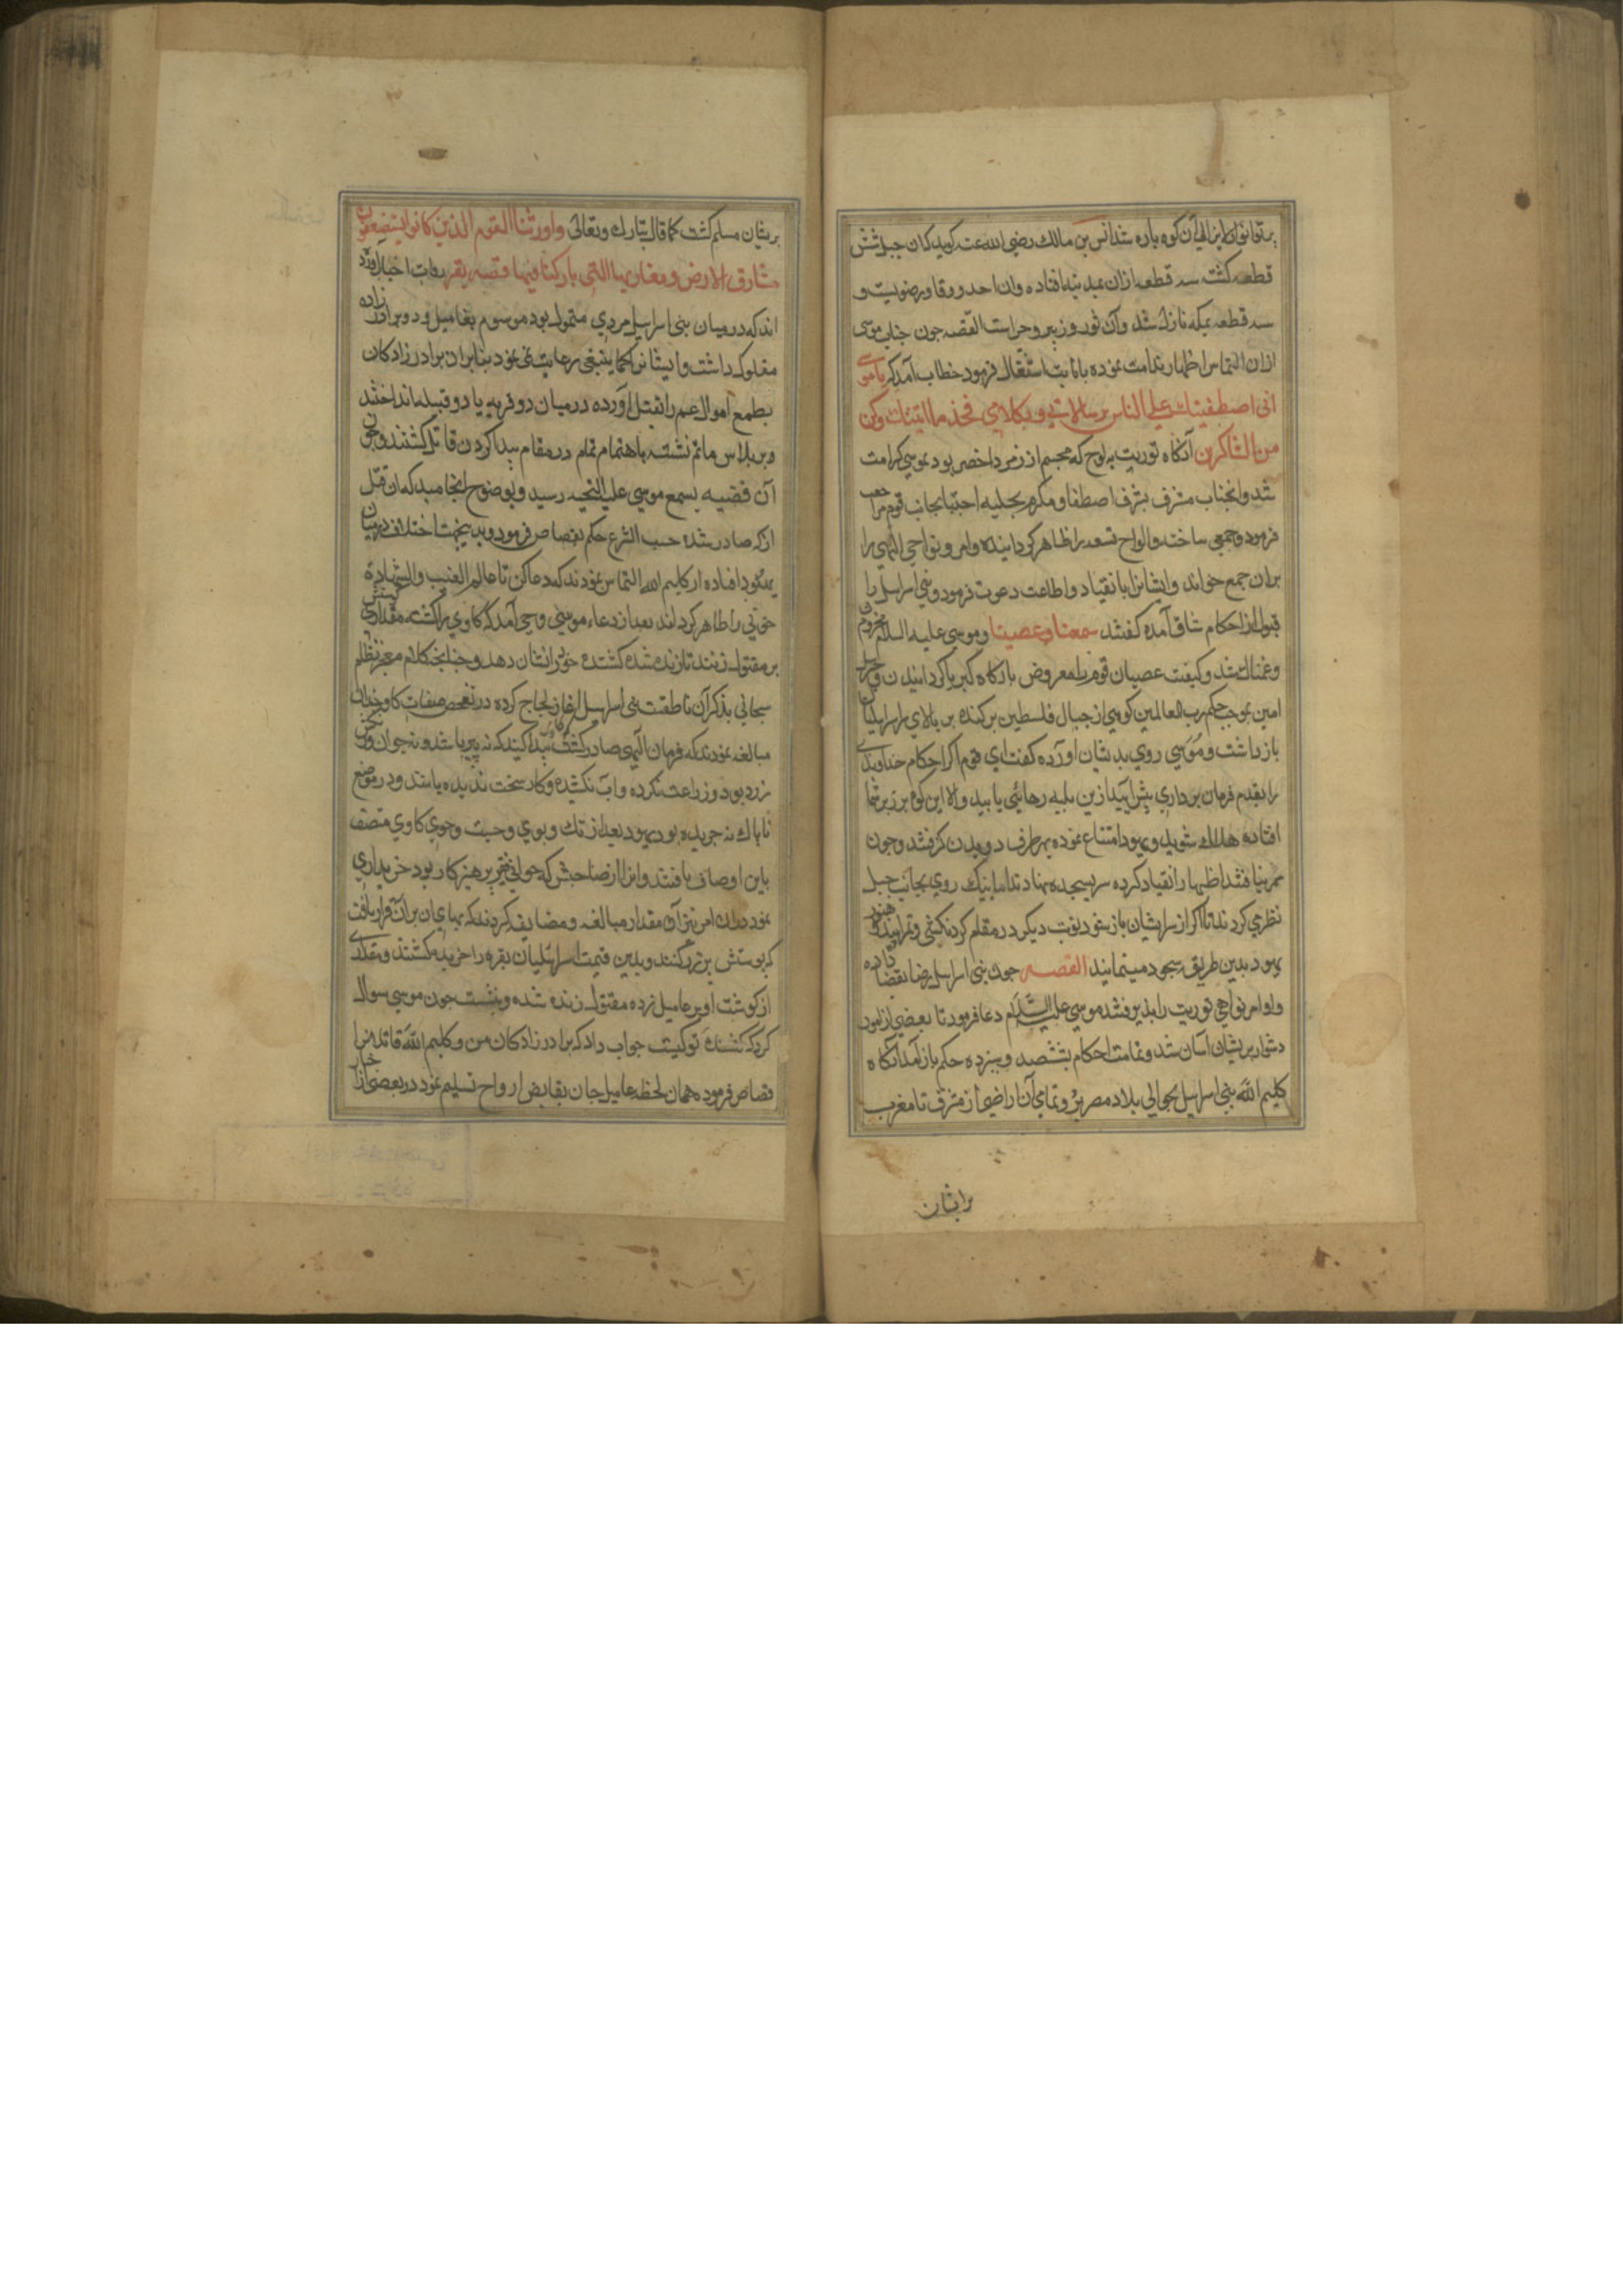 پرتو انوار الهی آن کوه پاره شد انس بن مالك رضی الله عنه کوید کان جبل شش
قطعه کشت سه قطعه ازان بمدینه افتاده وان احد و ورقا و رضویست و
سه قطعه بمکه نازل شد وآن ثور و زبیر و حراست القصه جون جناب موسی
ازان التماس اظهار ندامت نموده بانابت اشتغال فرمود خطاب آمد که یا موسی
انی اصطفیتك علی الناس برسالاتی وبکلامی فخذ ما اتیتك وکن
من الشاکرین آنکاه توریت به لوح که مجسم از زمرد اخضر بود بموسی کرامت
شد وانجناب مشرف بشرف اصطفا و مکرم بحلیه اجتبا بجانب قوم مراجعت
فرمود وجمعی ساخته والواح تسعه را ظاهر کردانیده وامر و نواحی الهی را
بران جمع خواند وایشانرا بانقیاد واطاعت دعوت فرمود وبنی اسرایل را
قبول از احکام شاق آمده کفتند سمعنا وعصینا وموسی علیه السلام محزون
وغمناك شد وکیفت عصیان قوم را معروض بارکاه کبریا کردانیدن وجبرئیل
امین بموجب حکم رب العالمین کوهی از جبال فلسطین برکنده بر بالای سر اسرایلیان
بازداشت وموسی روی بدیشان اورده کفت ای قوم اکر احکام خداوندی
را بقدم فرمان برداری پیش آیید ازین بلیه رهائی یابید والا این کوه بر زبر شما
افتاده هلاك شوید ویهود امتناع نموده بهر طرف دویدن کرفتند وجون
مفر نیافتند اظهار انقیاد کرده سر بسجده نهادند اما بنیك روی بجانب جبل
نظر می کردند تا اکر از سر ایشان باز شود نوبت دیکر در مقام کردنکشی وتمرد آیند وهنوز
یهود بدین طریق سجود مینمایند القصه جون بنی اسرایل رضا بقضا داده
واوامر نواهی توریت را پذیرفتند موسی علیه السلام دعا فرمود تا بعضی از امور
دشوار بریشان آسان شد وتمامت احکام بششصد وسیزده حکم باز آمد آنکاه
کلیم الله بنی اسرایل بحوالی بلاد مصر برد وتمامی آن اراضی از مشرق تا مغرب
برایشان
بریشان مسلم کشت کما قال تبارك وتعالی واورثنا القوم الذین کانوا یستضعفون
مشارق الارض ومغاربها التی بارکنا فیها قصه بقر رواة اخبار آورده
اند که درمیان بنی اسرایل مردی متمول بود موسوم بعامیل ودو برادرزاده
مفلوك داشت وایشانرا کما ینبغی رعایت نمی نمود بنابران برادرزادکان
بطمع اموال عم را بقتل اورده درمیان دو قریه یا دو قبیله انداختند
وبر پلاس ماتم نشسته باهتمام تمام درمقام پیدا کردن قاتل کشتند وجون
آن قضیه بسمع موسی علیه التحیه رسید وبوضوح انجامید که ان قتل
از که صادر شده حسب الشرع حکم بقصاص فرمود وبدین جهت اختلاف درمیان
یهود افتاده از کلیم الله التماس نمودند که دعا کن تا عالم الغیب والشهادة
خونی را ظاهر کرداند بعد از دعاء موسی وحی آمد که کاوی را کشته مقداری کوشتش
بر مقتول زنند تا زنده شده کشنده خودرا نشان دهد وجنانجه کلام معجز نظام
سبحانی بذکر آن ناطقست بنی اسرایل آغاز لجاج کرده در تفحص صفات کاو چندان
مبالغه نمودند که فرمان الهی صادر کشت کاوی پیدا کنید که نه پیر باشد ونه جوان ورنکش
زرد بود وزراعت نکرده واب نکشیده وکار سخت ندیده باشد ودر موضع
ناپاك نه جریده بود یهود بعد از تك وپوی وجست وجوی کاوی متصف
باین اوصاف یافتند وانرا از صاحبش که جوانی فقیر پرهیزکار بود خریداری
نمود دران امر نیز آن مقدار مبالغه ومضایقه کردند که بهای ان بران قرار یافت
که پوستش پر زر کنند وبدین قیمت اسرائلیان بقره را خریده کشتند ومقداری
از کوشت او بر عامیل زده مقتول زنده شده وبنشست جون موسی سوال
کرد که کشندهٔ تو کیست جواب داد که برادرزادکان من وکلیم الله قاتلانرا
قصاص فرموده همان لحظه عامیل جان بقابض ارواح تسلیم نمود در بعضی از اخبار